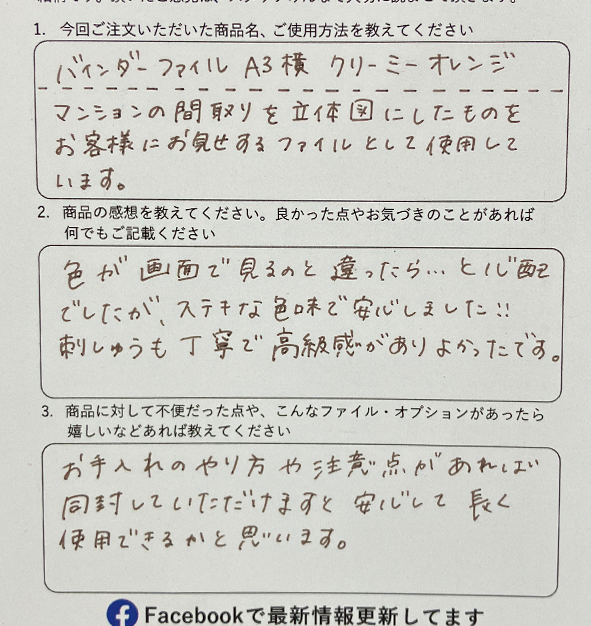 1. 今回ご注文いただいた商品名、ご使用方法を教えてください
バインダーファイル A3横 クリーミーオレンジ
マンションの間取りを立体図にしたものを
お客様にお見せするファイルとして使用して
います。
2. 商品の感想を教えてください。良かった点やお気づきのことがあれば
何でもご記載ください
色が画面で見るのと違ったら…と心配
でしたが、ステキな色味で安心しました!!
刺しゅうも丁寧で高級感がありよかったです。
3. 商品に対して不便だった点や、こんなファイル・オプションがあったら
嬉しいなどあれば教えてください
お手入れのやり方や注意点があれば
同封していただけますと安心して長く
使用できるかと思います。
Facebookで最新情報更新してます